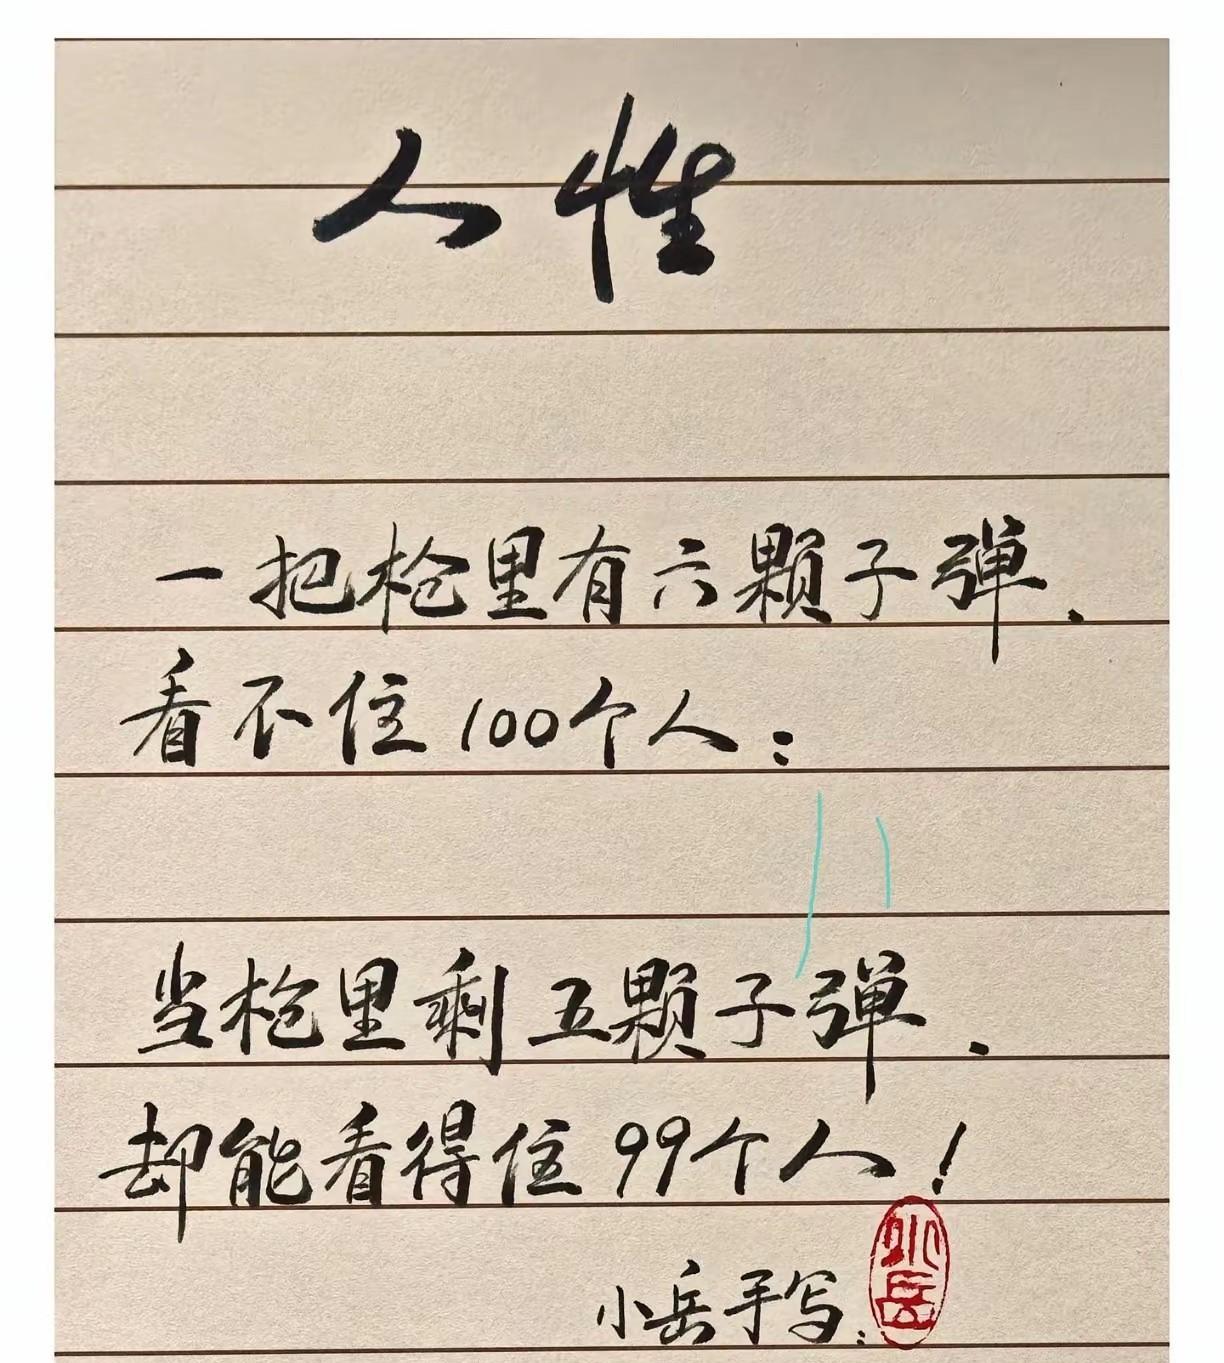 人性
一把枪里有六颗子弹.
看不住100个人:
当枪里剩五颗子弹.
却能看得住99个人!
小岳手写:
小岳